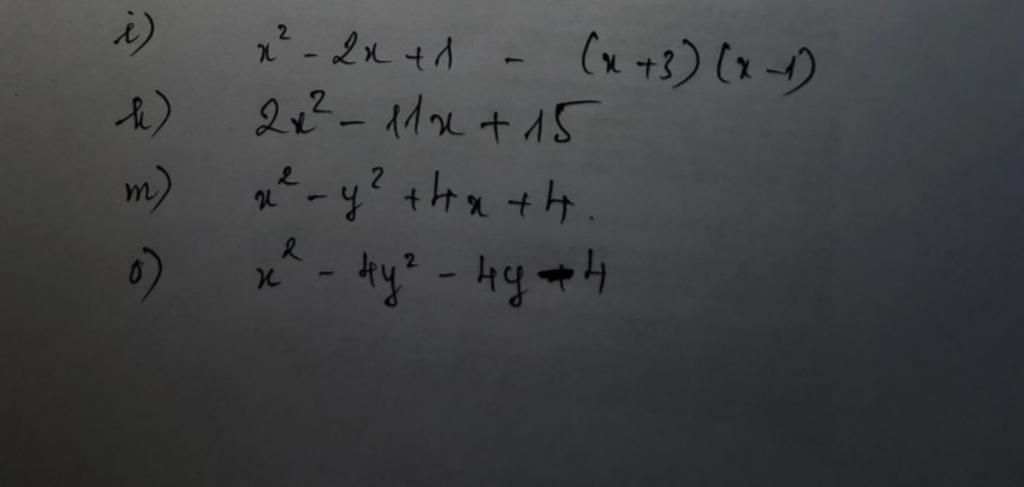 i) x² - 2x + 1 - (x + 3) (x - 1)
k) 2x² - 11x + 15
m) x² - y² + 4x + 4.
o) x² - 4y² - 4y - 4